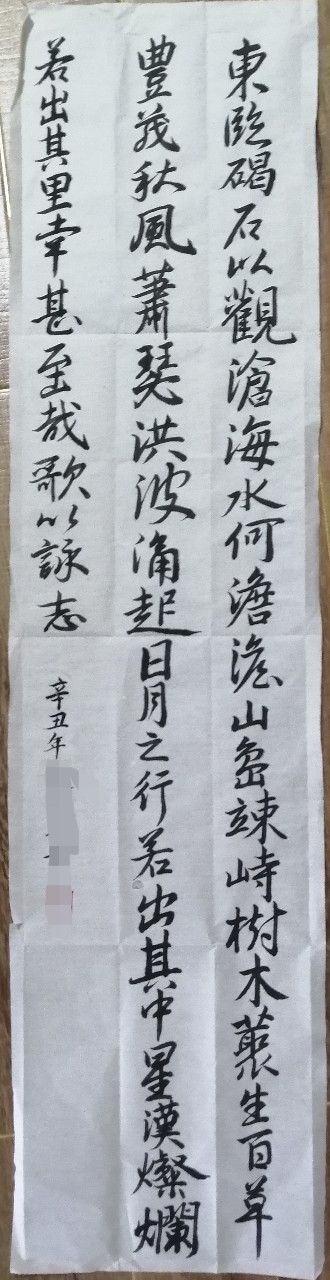 東臨碣石以觀滄海水何澹澹山島竦峙樹木叢生百草
豊茂秋風蕭瑟洪波涌起日月之行若出其中星漢燦爛
若出其里幸甚至哉歌以詠志
辛丑年